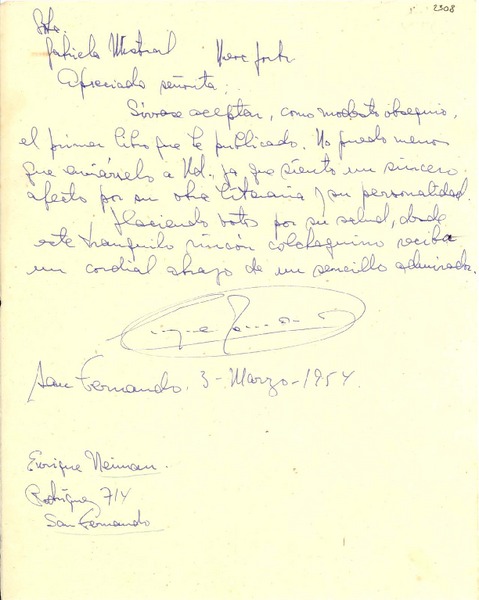 2308
Srta.
Gabriela Mistral New York
Apreciada señorita:
Sírvase aceptar, como modesto obsequio,
el primer libro que he publicado. No puedo menos
que enviárselo a Ud., ya que siento un sincero
afecto por su obra literaria y su personalidad.
Haciendo votos por su salud, desde
este tranquilo rincón colchagüino reciba
un cordial abrazo de un sencillo admirador.
San Fernando. 3-Marzo-1954.
Enrique Neiman.
Rodríguez 714
San Fernando